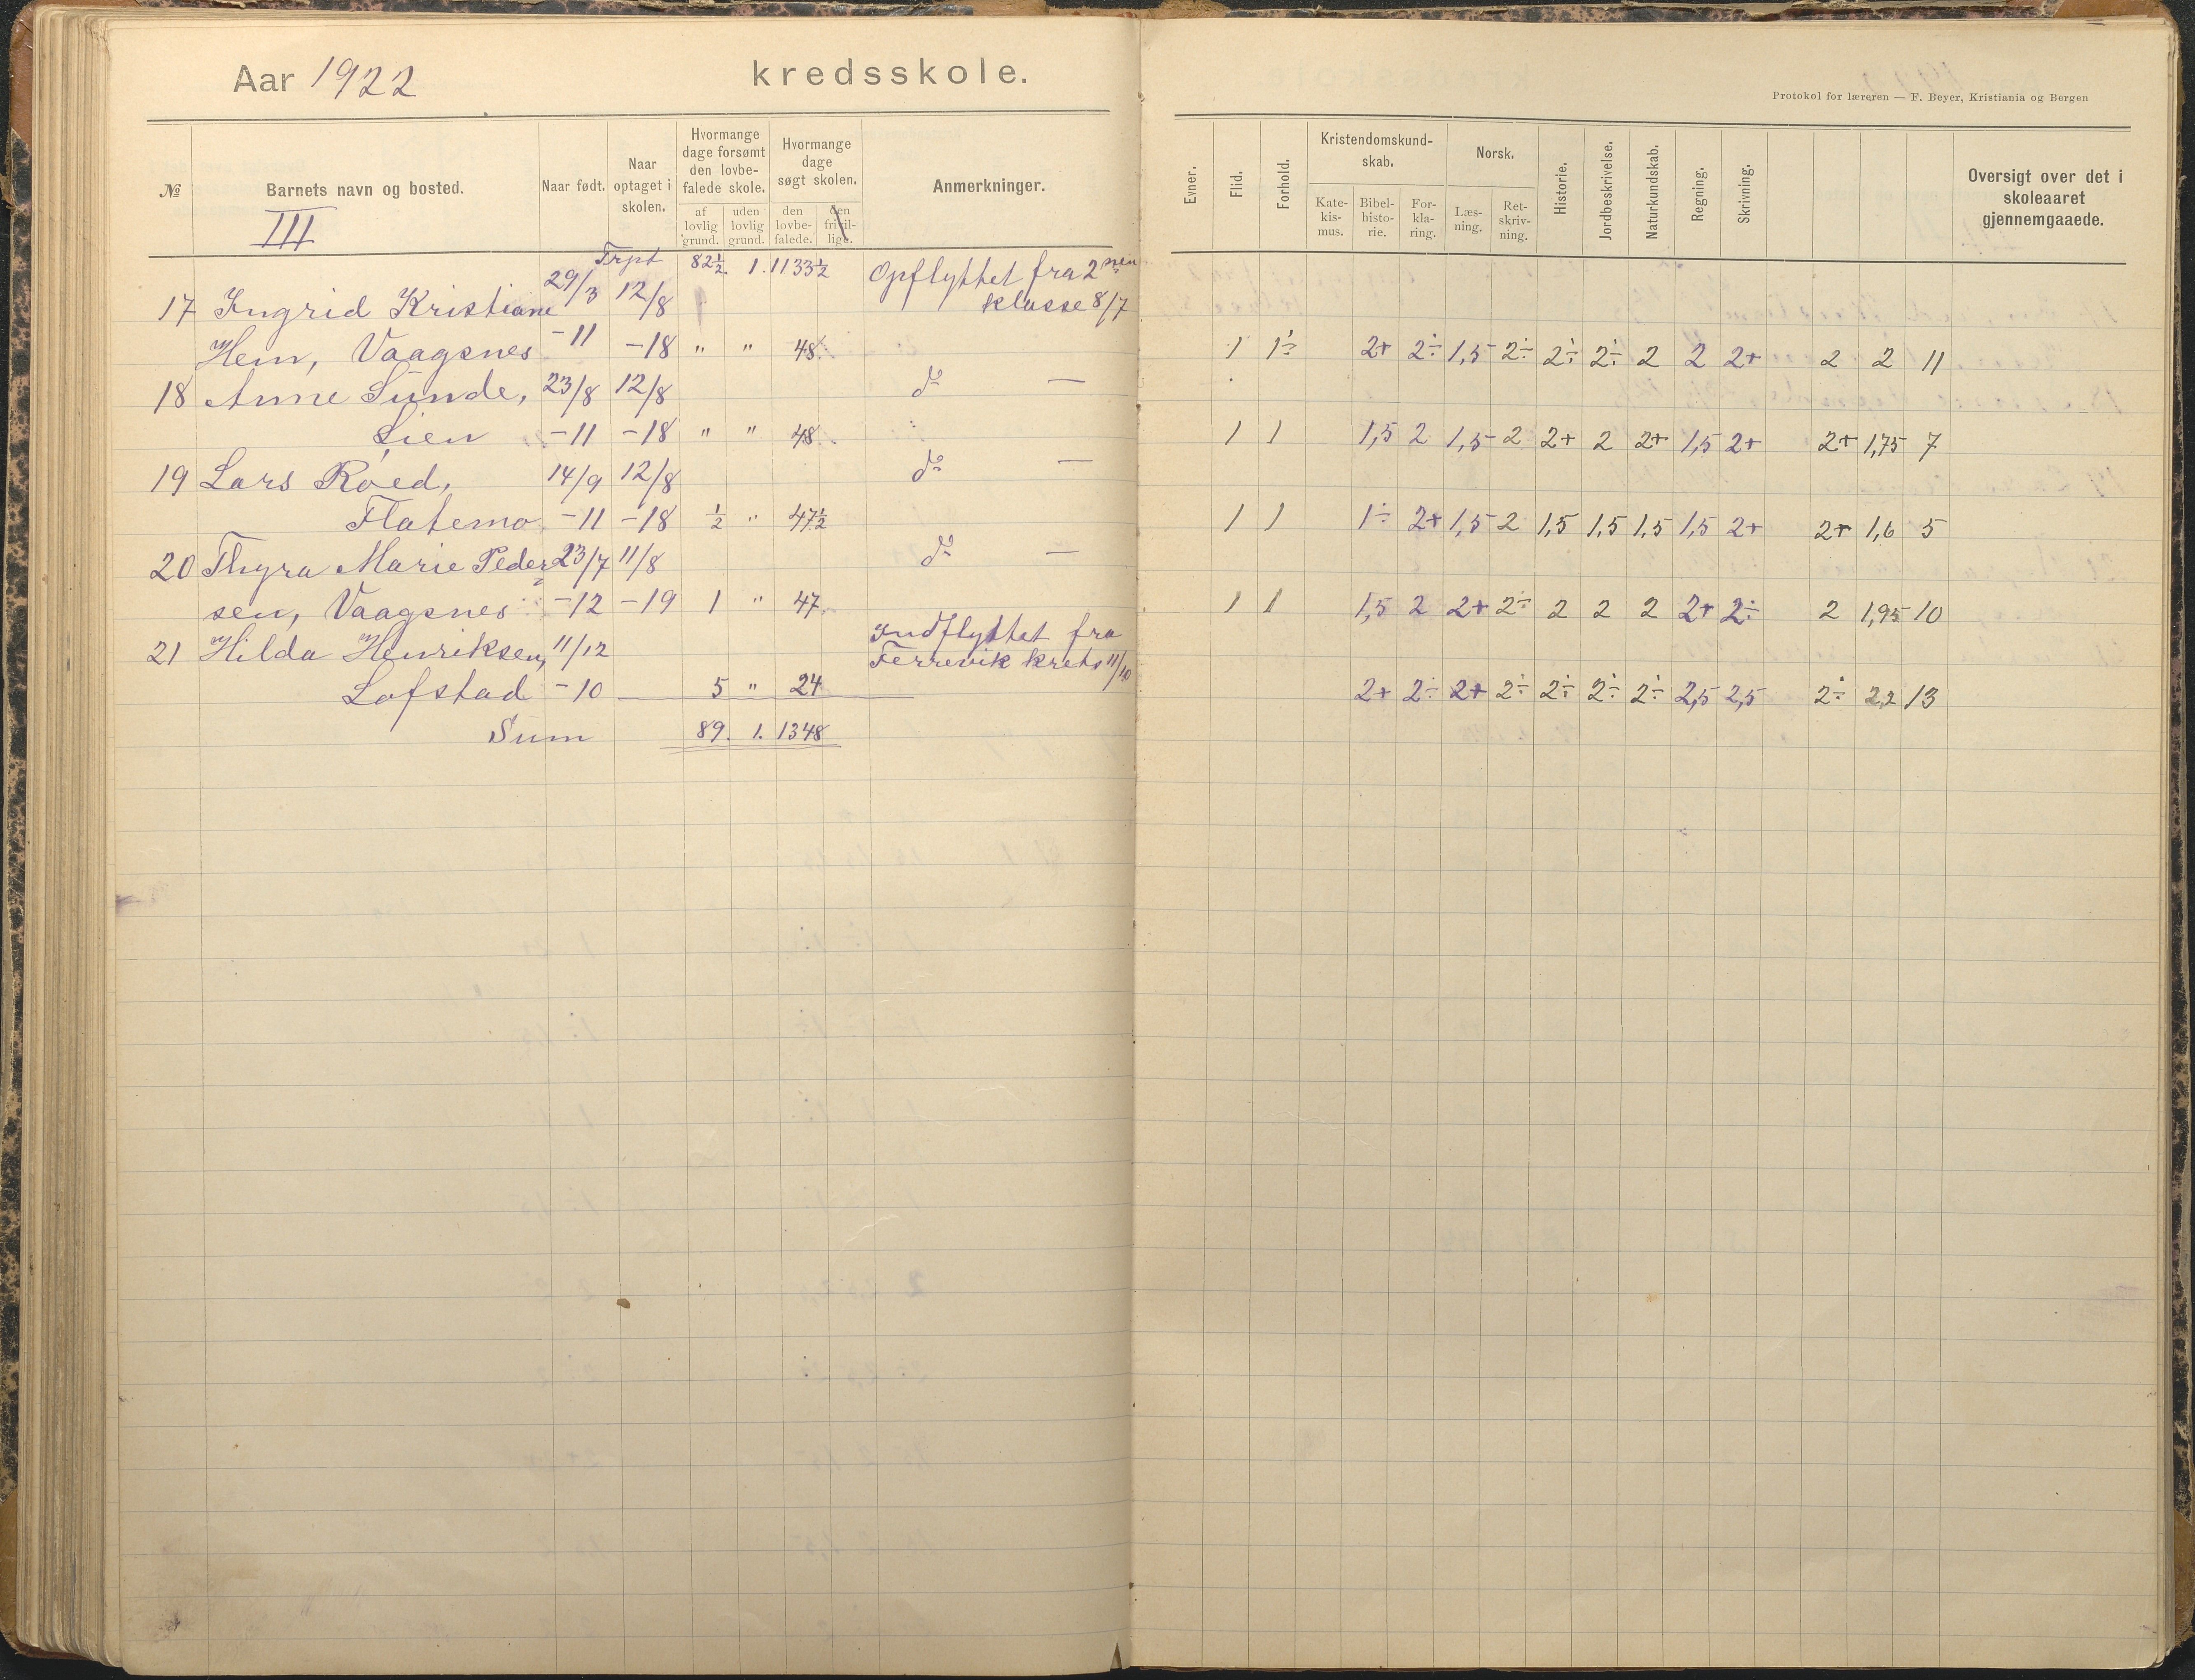 Aar 1922 kredsskole.
Protokol for læreren — F. Beyer, Kristiania og Bergen
№ Barnets navn og bosted. Naar født. Naar optaget i skolen. Hvormange dage forsømt den lovbefalede skole. Hvormange dage søgt skolen. Anmerkninger.
af lovlig grund. uden lovlig grund. den lovbefalede. den frivillige.
Evner. Flid. Forhold. Kristendomskundskab. Norsk. Historie. Jordbeskrivelse. Naturkundskab. Regning. Skrivning. Oversigt over det i skoleaaret gjennemgaaede.
Katekismus. Bibelhistorie. Forklaring. Læsning. Retskrivning.
III
Trpt 82½ 1. 1133½ Opflyttet fra 2nen
17 Ingrid Kristiane 29/3 12/8 klasse 8/7
Hem, Vaagsnes -11 -18 " " 48 1 1÷ 2+ 2÷ 1,5 2÷ 2÷ 2÷ 2 2 2+ 2 2 11
18 Anne Sunde, 23/8 12/8 do —
Lien -11 -18 " " 48 1 1 1,5 2 1,5 2 2+ 2 2+ 1,5 2+ 2+ 1,75 7
19 Lars Røed, 14/9 12/8 do —
Flatemo -11 -18 ½ " 47½ 1 1 1÷ 2+ 1,5 2 1,5 1,5 1,5 1,5 2+ 2+ 1,6 5
20 Thyra Marie Peder= 23/7 11/8 do —
sen, Vaagsnes -12 -19 1 " 47 1 1 1,5 2 2+ 2÷ 2 2 2 2+ 2÷ 2 1,95 10
Indflyttet fra
21 Hilda Henriksen, 11/12 Ferrevik krets 11/10
Lofstad -10 — 5 " 24 2+ 2÷ 2+ 2÷ 2÷ 2÷ 2÷ 2,5 2,5 2÷ 2,2 13
Sum 89. 1. 1348